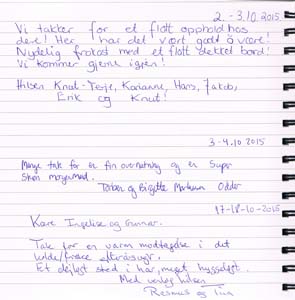 2. - 3.10.2015
Vi takker for et flott opphold hos
dere! Her har det vært godt å være!
Nydelig frokost med et flott dekket bord!
Vi kommer gjerne igjen!
Hilsen Knut-Terje, Karianne, Hans, Jakob,
Erik og Knut!
3-4.10 2015
Mange tak for en fin overnatning og en Super
Skøn morgenmad.
Torben og Birgitte Odder
17-18-10-2015
Kære Ingelise og Gunnar.
Tak for en varm modtagelse i det
kolde/friske efterårsvejr.
Et dejligt sted i har, meget hyggeligt.
Med venlig hilsen
Rasmus og